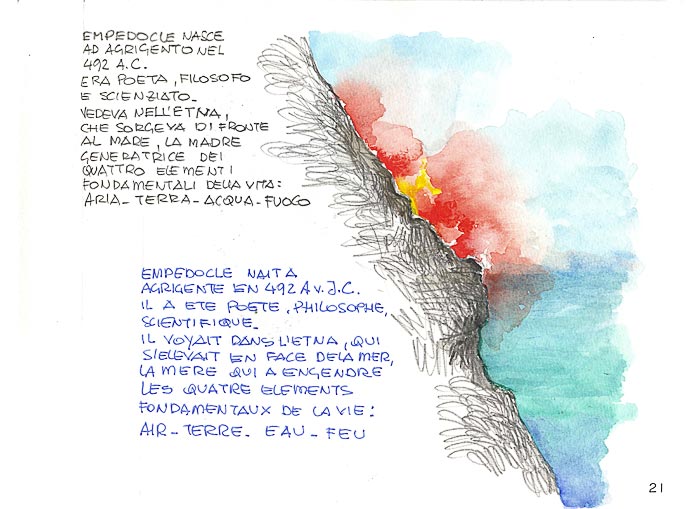 EMPEDOCLE NASCE
AD AGRIGENTO NEL
492 A.C.
ERA POETA, FILOSOFO
E SCIENZIATO_
VEDEVA NELL'ETNA,
CHE SORGEVA DI FRONTE
AL MARE, LA MADRE
GENERATRICE DEI
QUATTRO ELEMENTI
FONDAMENTALI DELLA VITA:
ARIA_TERRA_ACQUA_FUOCO
EMPEDOCLE NAIT A
AGRIGENTE EN 492 Av. J.C.
IL A ETE POETE, PHILOSOPHE,
SCIENTIFIQUE_
IL VOYAIT DANS L'ETNA, QUI
S'ELEVAIT EN FACE DE LA MER,
LA MERE QUI A ENGENDRE
LES QUATRE ELEMENTS
FONDAMENTAUX DE LA VIE:
AIR_TERRE_ EAU_FEU
21